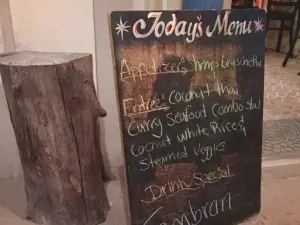 Today's Menu
Appetizer: Shrimp bruschetta
Entree: Coconut thai
Curry Seafood Combo
Coconut white Rice &
Steamed Veggies
Drink Special